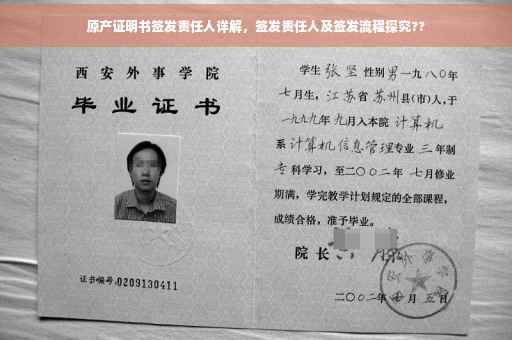 原产证明书签发责任人详解，签发责任人及签发流程探究??
西安外事学院
毕业证书
证书编号:0209130411
学生 张坚 性别 男 一九八〇年
七月生，江苏省 苏州县(市)人，于
一九九九年 九月入本院 计算机
系 计算机信息管理专业 三 年制
专科学习，至二〇〇二年 七月修业
期满，学完教学计划规定的全部课程，
成绩合格，准予毕业。
院长
二〇〇二年 月 五 日